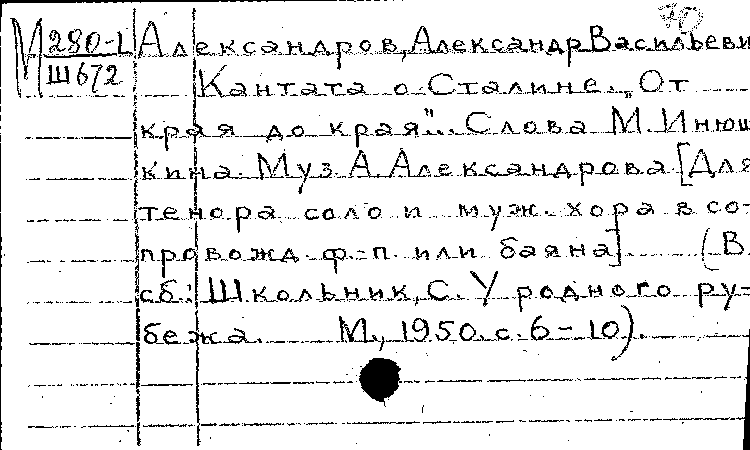 70
М 280-1
Ш672
Александров, Александр Васильеви
Кантата о Сталине. „От
края до края"... Слова М. Инюш
кина. Муз. А. Александрова [Для
тенора соло и муж. хора в со-
провожд. ф.-п. или баяна]. (В
сб.: Школьник, С. У родного ру-
бежа. М., 1950. с. 6-10).